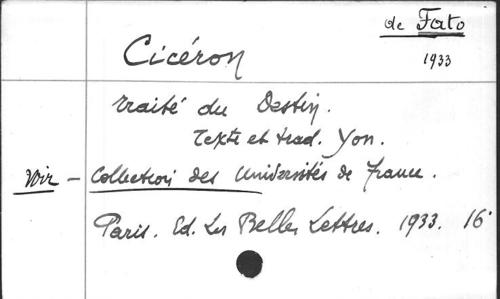 de Fato
Cicéron
1933
Traité du Destin.
Texte et trad. Yon.
Voir - Collection des Universités de France.
Paris. Ed. Les Belles Lettres. 1933. 16°